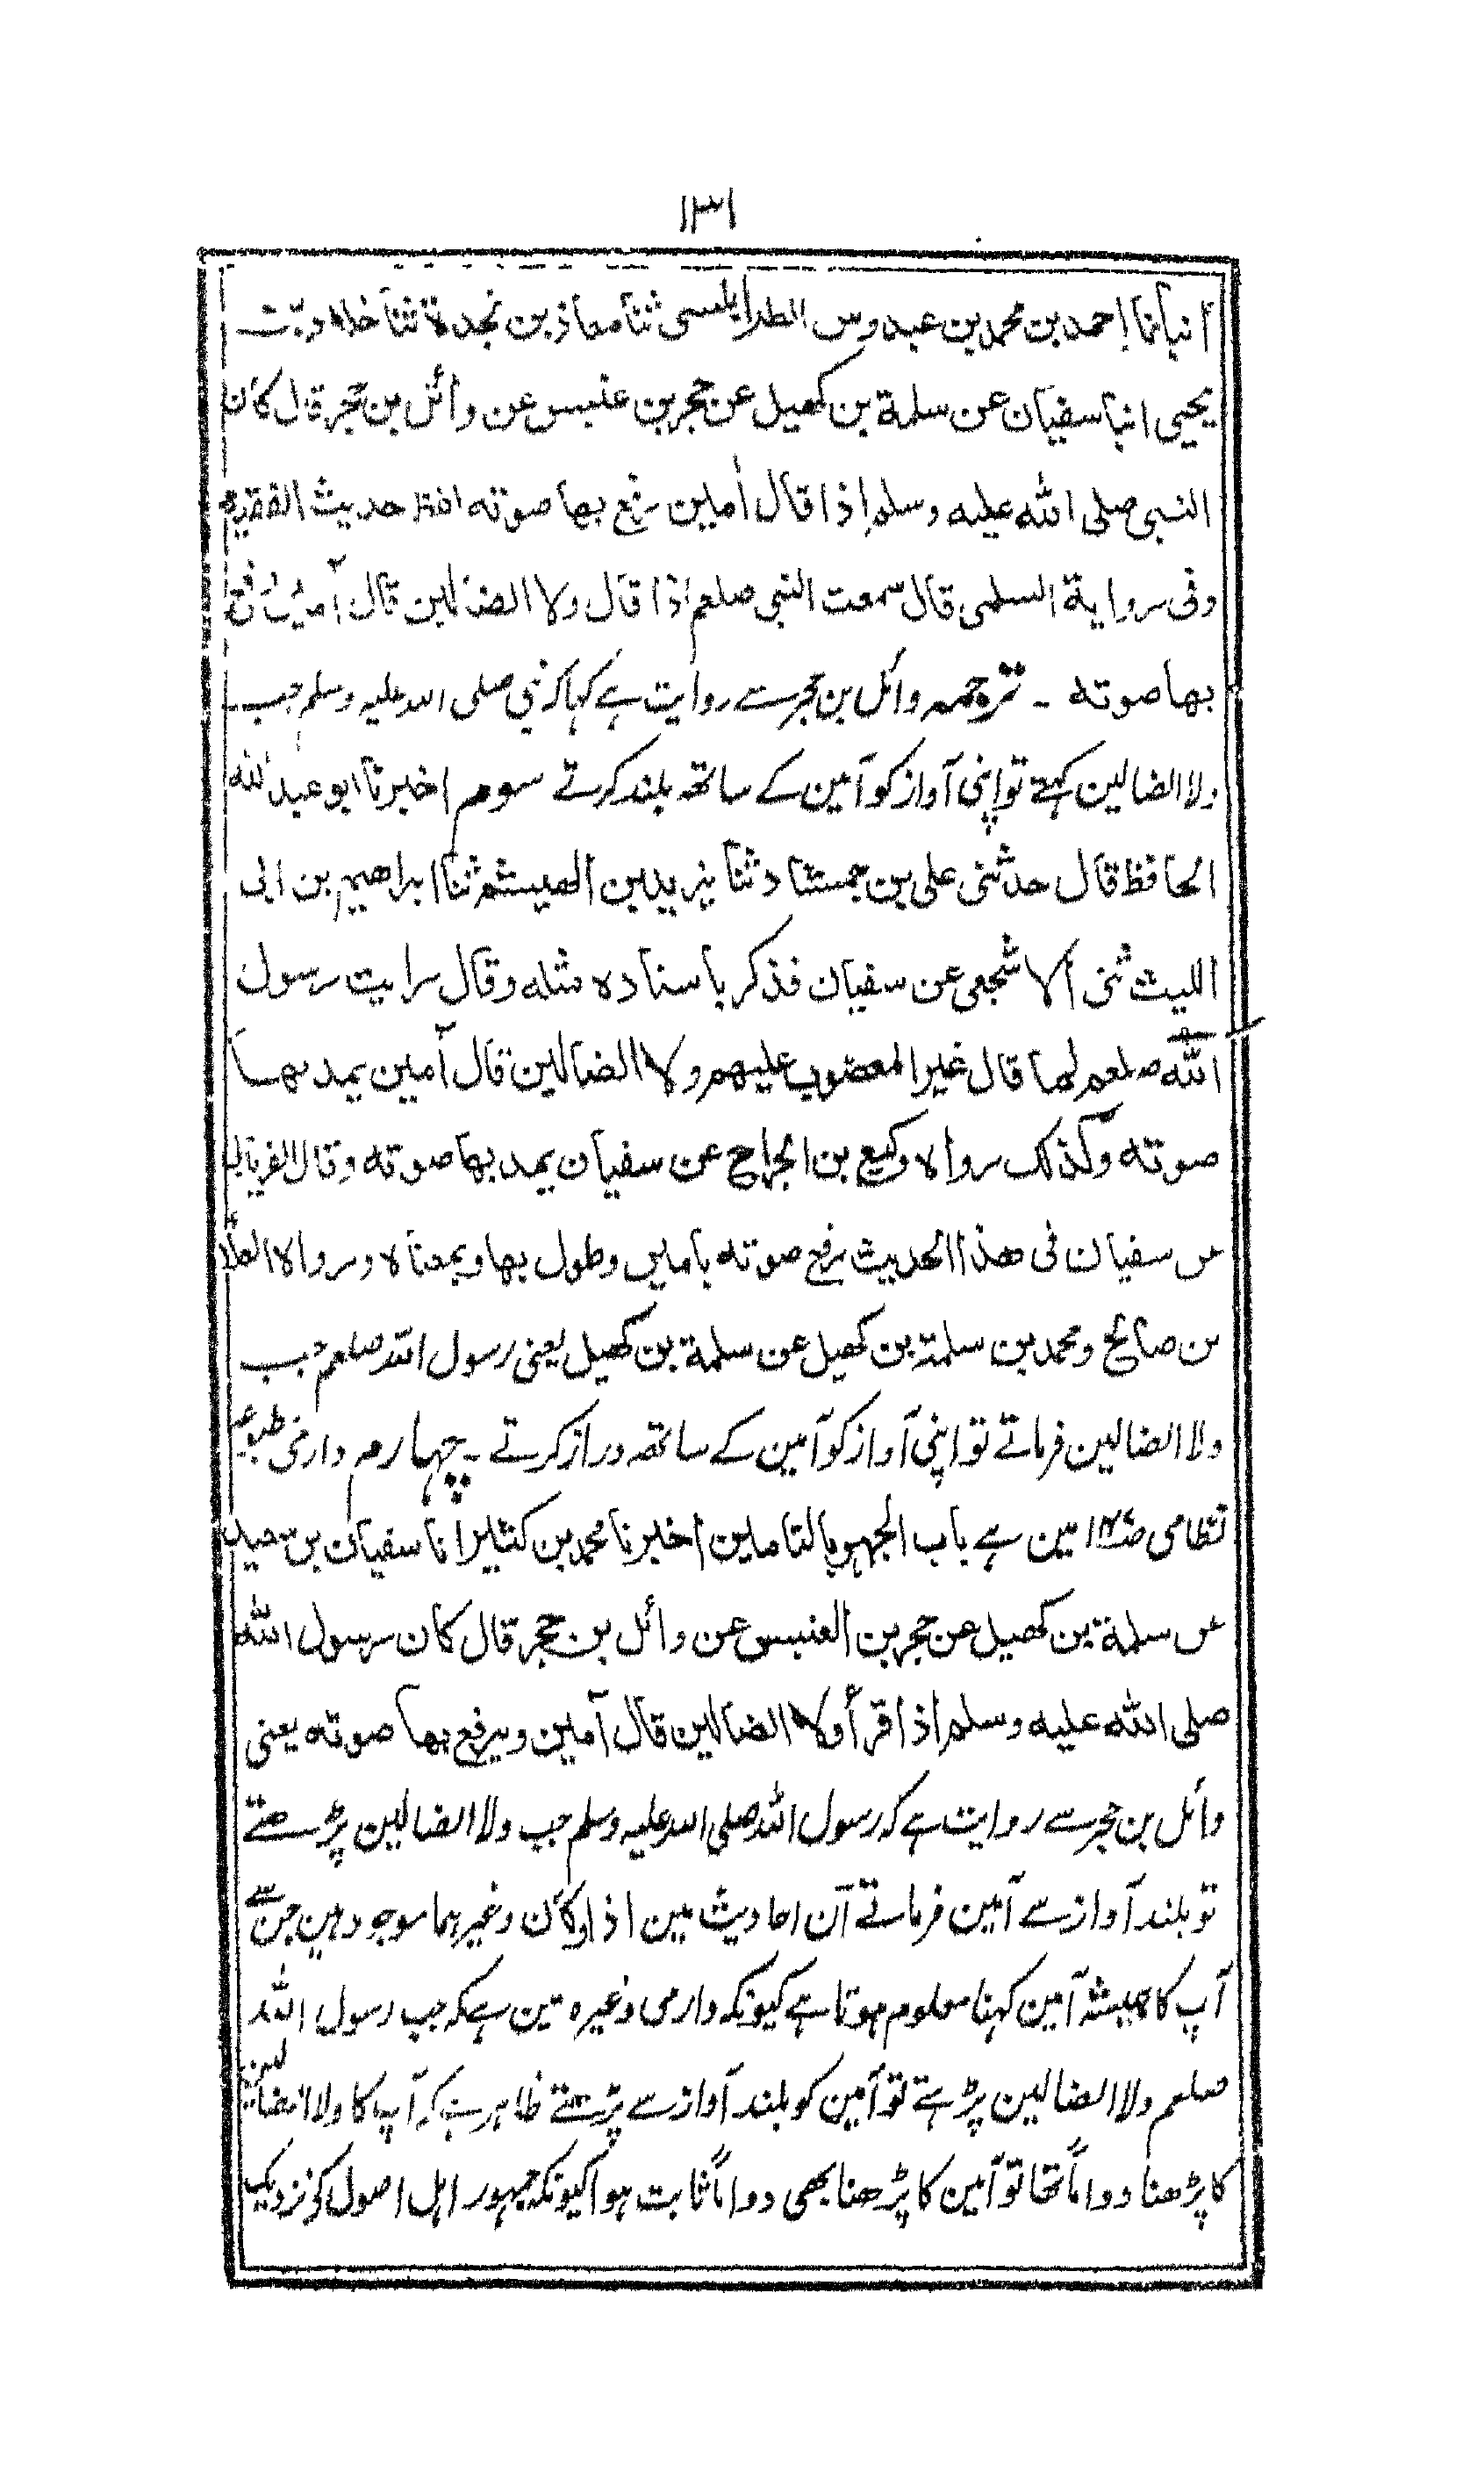 ۱۳۱
أنبأنا إحمد بن محمد بن عبدوس الطرايلسى ثنا معاذ بن نجدة ثنا خلاد بن
يحيى انبا سفيان عن سلمة بن كهيل عن حجر بن عنبس عن وائل بن حجر قال كان
النبى صلى الله عليه وسلم إذا قال أمين رفع بها صوته لفظ حديث الفقيه
وفى رواية السلمى قال سمعت النبى صلعم اذا قال ولا الضالين قال آمين رفع
بها صوته ۔ ترجمہ وائل بن حجر سے روایت ہے کہا کہ نبی صلی اللہ علیہ وسلم جب
ولا الضالین کہتے تو اپنی آواز کو آمین کے ساتھ بلند کرتے سوم اخبرنا ابو عبد الله
الحافظ قال حدثنى على بن حمشاد ثنا يزيد بن الهيثم ثنا ابراهيم بن ابى
الليث ثنى الاشجعى عن سفيان فذكر باسناده مثله وقال رايت رسول
الله صلعم لما قال غير المغضوب عليهم ولا الضالين قال آمين يمد بها
صوته وكذلك رواه وكيع بن الجراح عن سفيان يمد بها صوته وقال الفريابى
عن سفيان فى هذا الحديث رفع صوته بامين وطول بها وبمعناه ورواه العلاء
بن صالح ومحمد بن سلمة بن كهيل عن سلمة بن كهيل یعنی رسول اللہ صلعم جب
ولا الضالین فرماتے تو اپنی آواز کو آمین کے ساتھ دراز کرتے ۔ چہارم دارمی مطبوعہ
نظامی ص۱۴۶ مین ہے باب الجهر بالتامين أخبرنا محمد بن كثير انا سفيان بن سعيد
عن سلمة بن كهيل عن حجر بن العنبس عن وائل بن حجر قال كان رسول الله
صلى الله عليه وسلم إذا قرأ ولا الضالين قال آمين ويرفع بها صوته یعنی
وائل بن حجر سے روایت ہے کہ رسول اللہ صلی اللہ علیہ وسلم جب ولا الضالین پڑھتے
تو بلند آواز سے آمین فرماتے ان احادیث مین اذا وکان وغیرہما موجود ہین جن سے
آپ کا ہمیشہ آمین کہنا معلوم ہوتا ہے کیونکہ دارمی وغیرہ مین ہے کہ جب رسول اللہ
صلعم ولا الضالین پڑہتے تو آمین کو بلند آواز سے پڑہتے ظاہر ہے کہ آپ کا ولا الضالین
کا پڑھنا دواماً تھا تو آمین کا پڑھنا بھی دواماً ثابت ہوا کیونکہ جمہور اہل اصول کے نزدیک